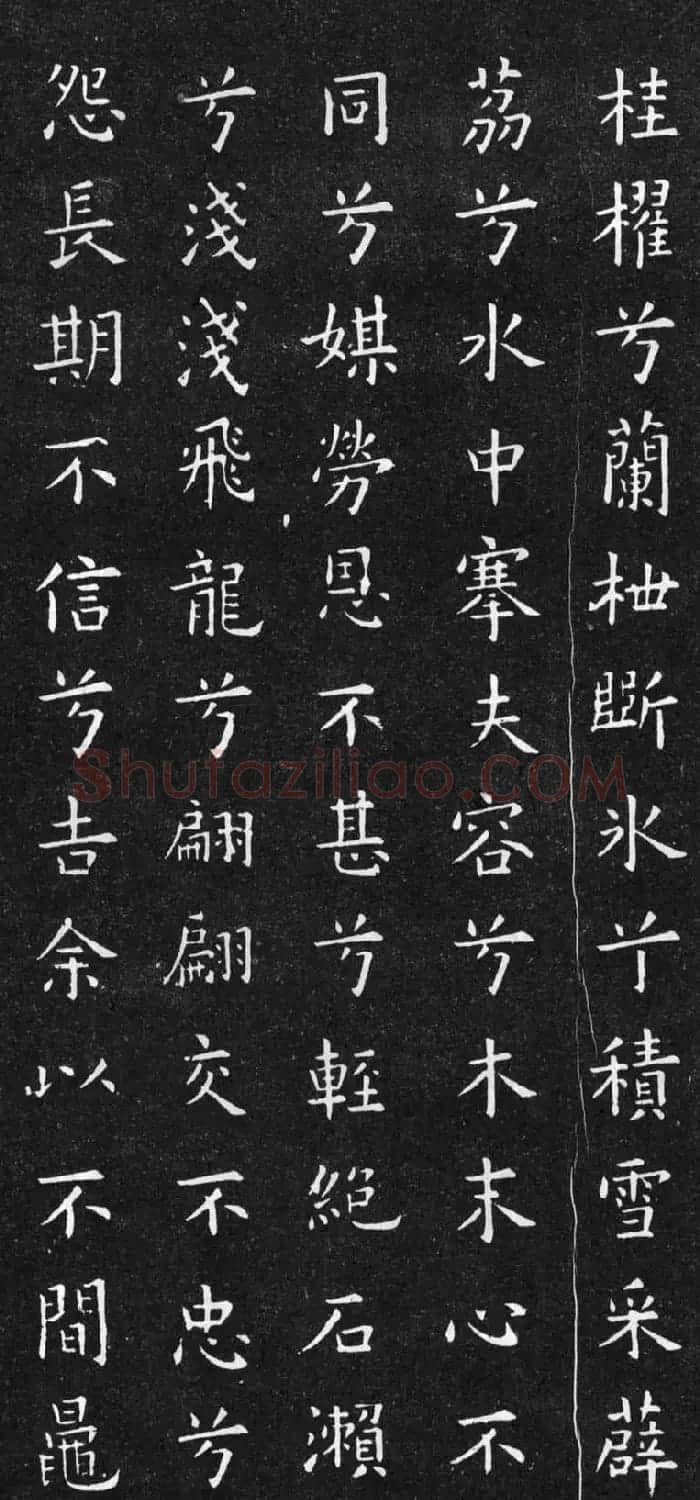 桂櫂兮蘭枻斲氷兮積雪采薜
荔兮水中搴夫容兮木末心不
同兮媒勞恩不甚兮輕絕石瀨
兮淺淺飛龍兮翩翩交不忠兮
怨長期不信兮告余以不間鼂
Shufaziliao.COM